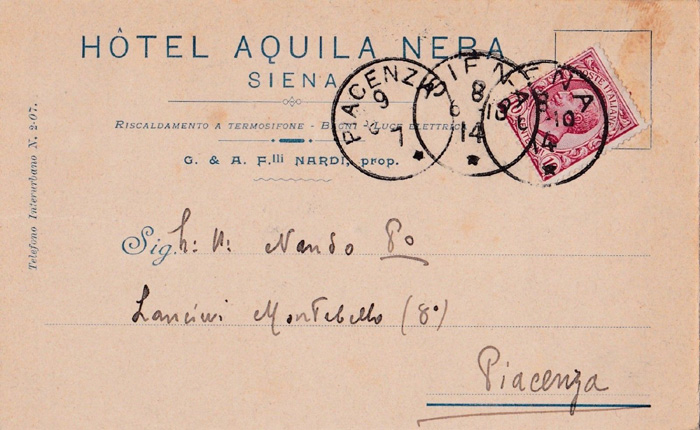 HÔTEL AQUILA NERA
SIENA
RISCALDAMENTO A TERMOSIFONE - BAGNI - LUCE ELETTRICA
G. & A. F.lli NARDI, prop.
Telefono Interurbano N. 2-07.
PIACENZA
9
7
SIENA
8
6
14
SIENA
8
10
14
POSTE ITALIANE
Sig. Nando Po
Lancieri Montebello (8°)
Piacenza